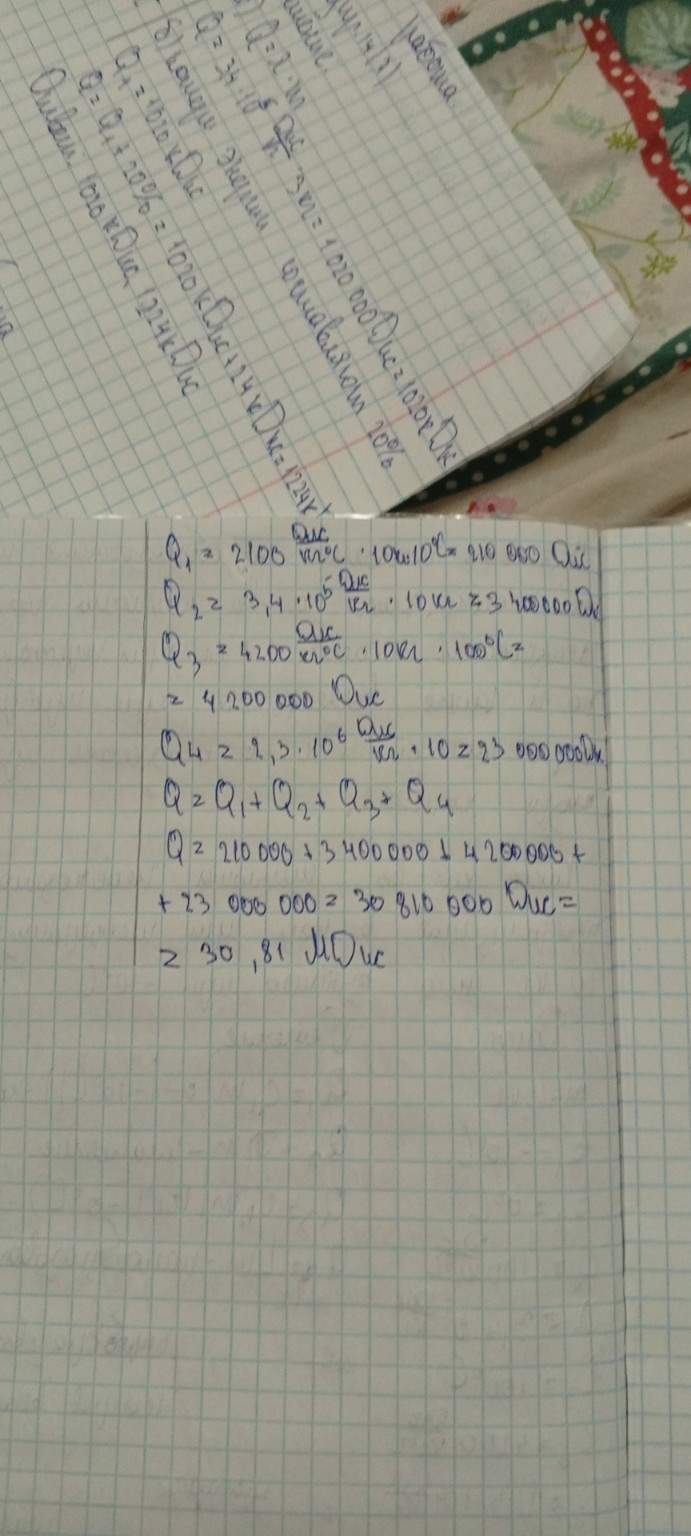 работа.
Q = λ · m
Q = 3,4 · 10⁵ Дж/кг · 3 кг = 1 020 000 Дж = 1020 кДж
б) потери энергии составляют 20%
Q₁ = 1020 кДж
Q = Q₁ + 20% = 1020 кДж + 24 кДж = 1224к
Ответ: 1020 кДж, 1224 кДж
Q₁ = 2100 Дж/кг°C · 10кг·10°C = 210 000 Дж
Q₂ = 3,4 · 10⁵ Дж/кг · 10 кг = 3 400000 Дж
Q₃ = 4200 Дж/кг°C · 10кг · 100°C =
= 4 200 000 Дж
Q₄ = 2,3 · 10⁶ Дж/кг · 10 = 23 000 000Дж
Q = Q₁ + Q₂ + Q₃ + Q₄
Q = 210 000 + 3 400 000 + 4 200 000 +
+ 23 000 000 = 30 810 000 Дж =
= 30,81 МДж